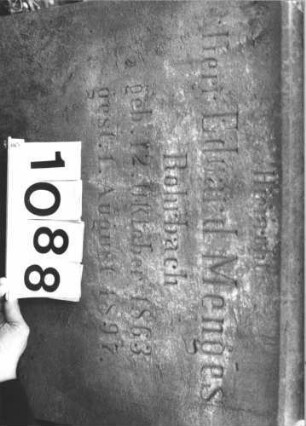 Herr Eduard Menges
Rohrbach
geb. 12. Oktober 1863
gest. 1. August 1897.
1088